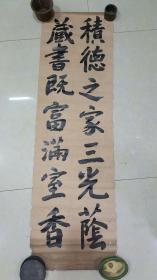 積德之家三光蔭
藏書既富滿室香